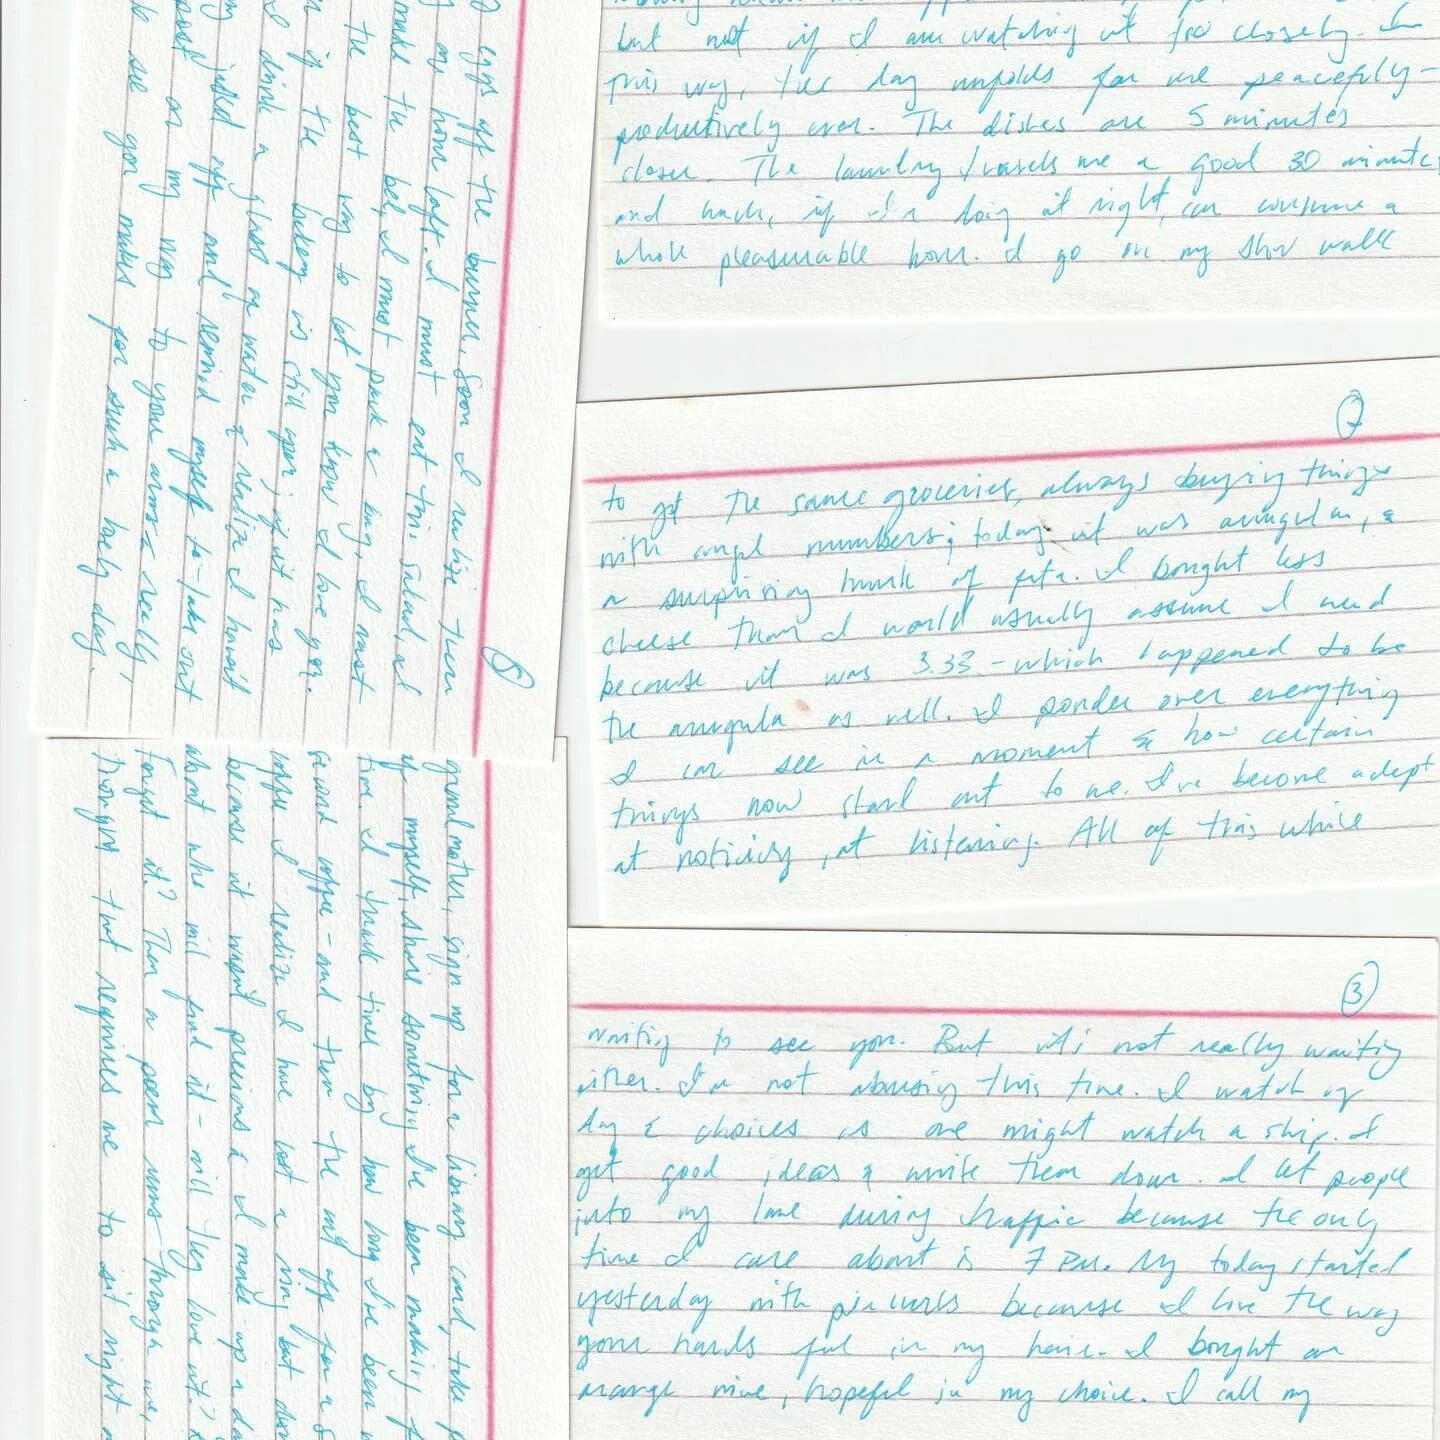 but not if I am watching it too closely. In
this way, the day unfolds for me peacefully-
productively even. The dishes are 5 minutes
closer. The laundry travels me a good 30 minutes
and back, if I'm doing it right, can consume a
whole pleasurable hour. I go on my slow walk
2
to get the same groceries, always buying things
with angel numbers; today it was arugula, &
a surprising hunk of feta. I bought less
cheese than I would usually assume I need
because it was 3.33 - which happened to be
the arugula as well. I ponder over everything
I can see in a moment & how certain
things now stand out to me. I've become adept
at noticing, at listening. All of this while
3
waiting to see you. But it's not really waiting
either. I'm not abusing this time. I watch my
day & choices as one might watch a ship. I
get good ideas & write them down. I let people
into my lane during traffic because the only
time I care about is 7 PM. My today started
yesterday with pin curls because I love the way
your hands feel in my hair. I bought an
orange wine, hopeful in my choice. I call my
grandmother, sign up for a library card, take
of myself, share something I've been making
time. I track time by how long I've been
second coffee - and then the cut off for a
coffee I realize I have lost a ring but don't
because it wasn't precious & I made up a
about who will find it - will they love it?
forget it? Then a poem runs through me,
thought that requires me to sit right
5
eggs off the burner, soon I realize
my hour left. I must eat this salad,
make the bed, I must pack a bag, I must
the best way to let you know I love you.
if the bakery is still open, if it has
I drink a glass of water & realize I haven't
jotted off and remind myself to take out
post on my way to your arms & really,
see you makes for such a lovely day.